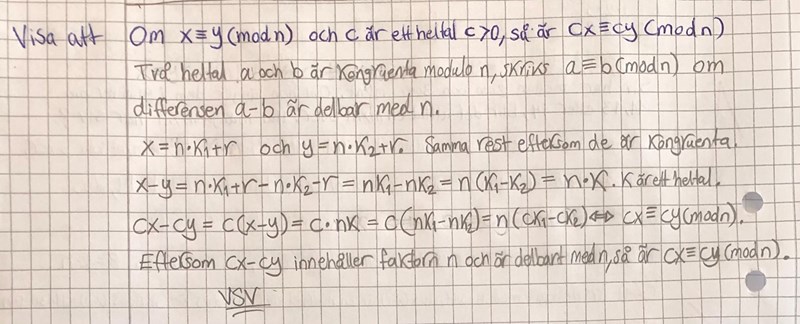 Visa att Om x≡y(mod n) och c är ett heltal c>0, så är cx≡cy(mod n)
Två heltal a och b är kongruenta modulo n, skrivs a≡b(mod n) om
differensen a-b är delbar med n.
x=n·k₁+r och y=n·k₂+r. Samma rest eftersom de är kongruenta.
x-y=n·k₁+r-n·k₂-r=nk₁-nk₂=n(k₁-k₂)=n·k. k är ett heltal.
cx-cy=c(x-y)=c·nk=c(nk₁-nk₂)=n(ck₁-ck₂)⇔ cx≡cy(mod n).
Eftersom cx-cy innehåller faktorn n och är delbart med n, så är cx≡cy(mod n).
VSV